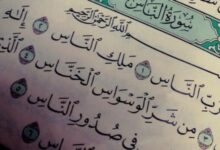 سُورَةُ النَّاسِ
بِسْمِ اللَّهِ الرَّحْمَٰنِ الرَّحِيمِ
بِّ النَّاسِ ١ مَلِكِ النَّاسِ ٢ إِلَٰهِ
٣ مِن شَرِّ الْوَسْوَاسِ الْخَنَّاسِ ٤ الَّذِي
فِي صُدُورِ النَّاسِ ٥